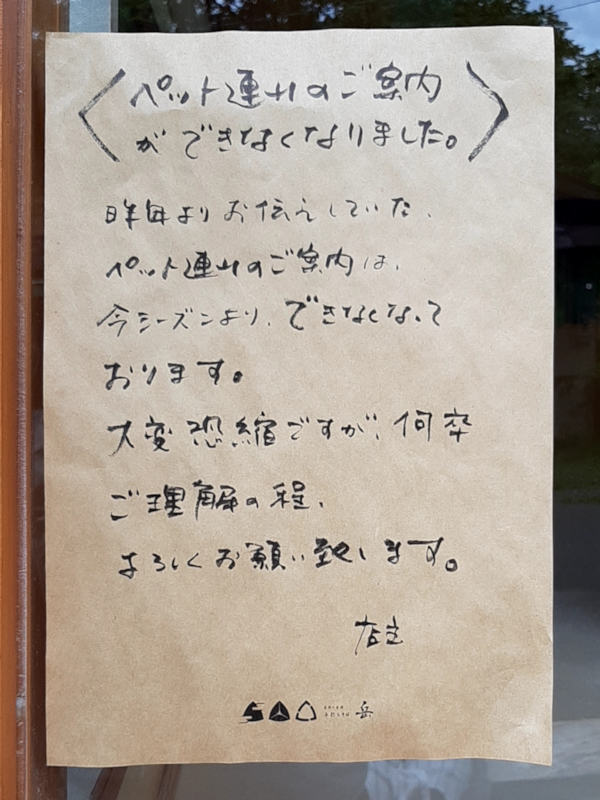 〈ペット連れのご案内
ができなくなりました。〉
昨年よりお伝えしていた、
ペット連れのご案内は、
今シーズンより、できなくなって
おります。
大変恐縮ですが、何卒
ご理解の程、
よろしくお願い致します。
店主
岳